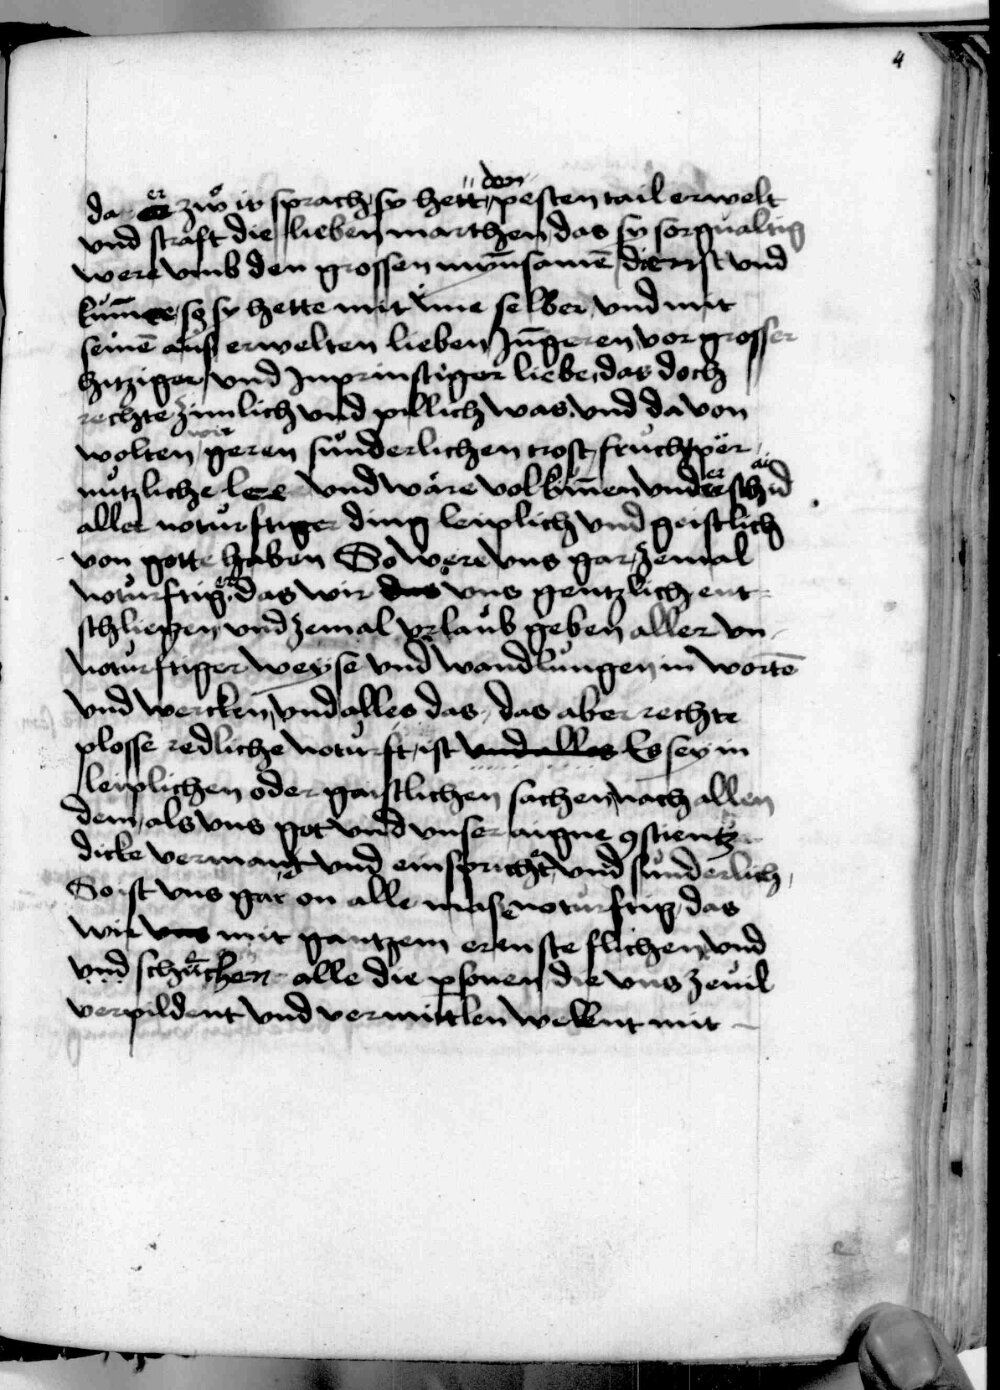 4
da er zwͦ ir sprach sy hett den pesten tail erwelt
vnd straft die lieben marthen das sy sorgualtig
were vmb den grossen mynsamē dienst vnd
kum̄er so sy hette mit ime selber vnd mit
seinē aus erwelten lieben Jungeren vor grosser
hitziger vnd Inprinstiger liebe das doch
rechte zimlich vnd pillich was vnd da von
wolten wir geren sunderlichen trost fruchtper
nutzliche lere vnd ware volkum̄en vnderschaid
aller noturftiger ding leiplich vnd geistlich
von gotte haben So were vns gar zemal
noturftig das wir das vns gentzlich ent
schliegen vnd zemal vrlaub geben aller vn
noturftiger weyse vnd wandlungen in wortē
vnd wercken vnd alles das das aber rechte
plosse redliche noturft ist vnd alles Es sey in
leiplichen oder gaistlichen sachen nach allen
dem als vns got vnd vnser aigne 9scientz
dicke vermant vnd einspricht vnd sunderlich
So ist vns gar on alle mase noturftig das
wir vns mit gantzem erenste flichen vnd
vnd schuchen alle die psonen die vns zeuil
verpildent vnd vermittlen wellent mit